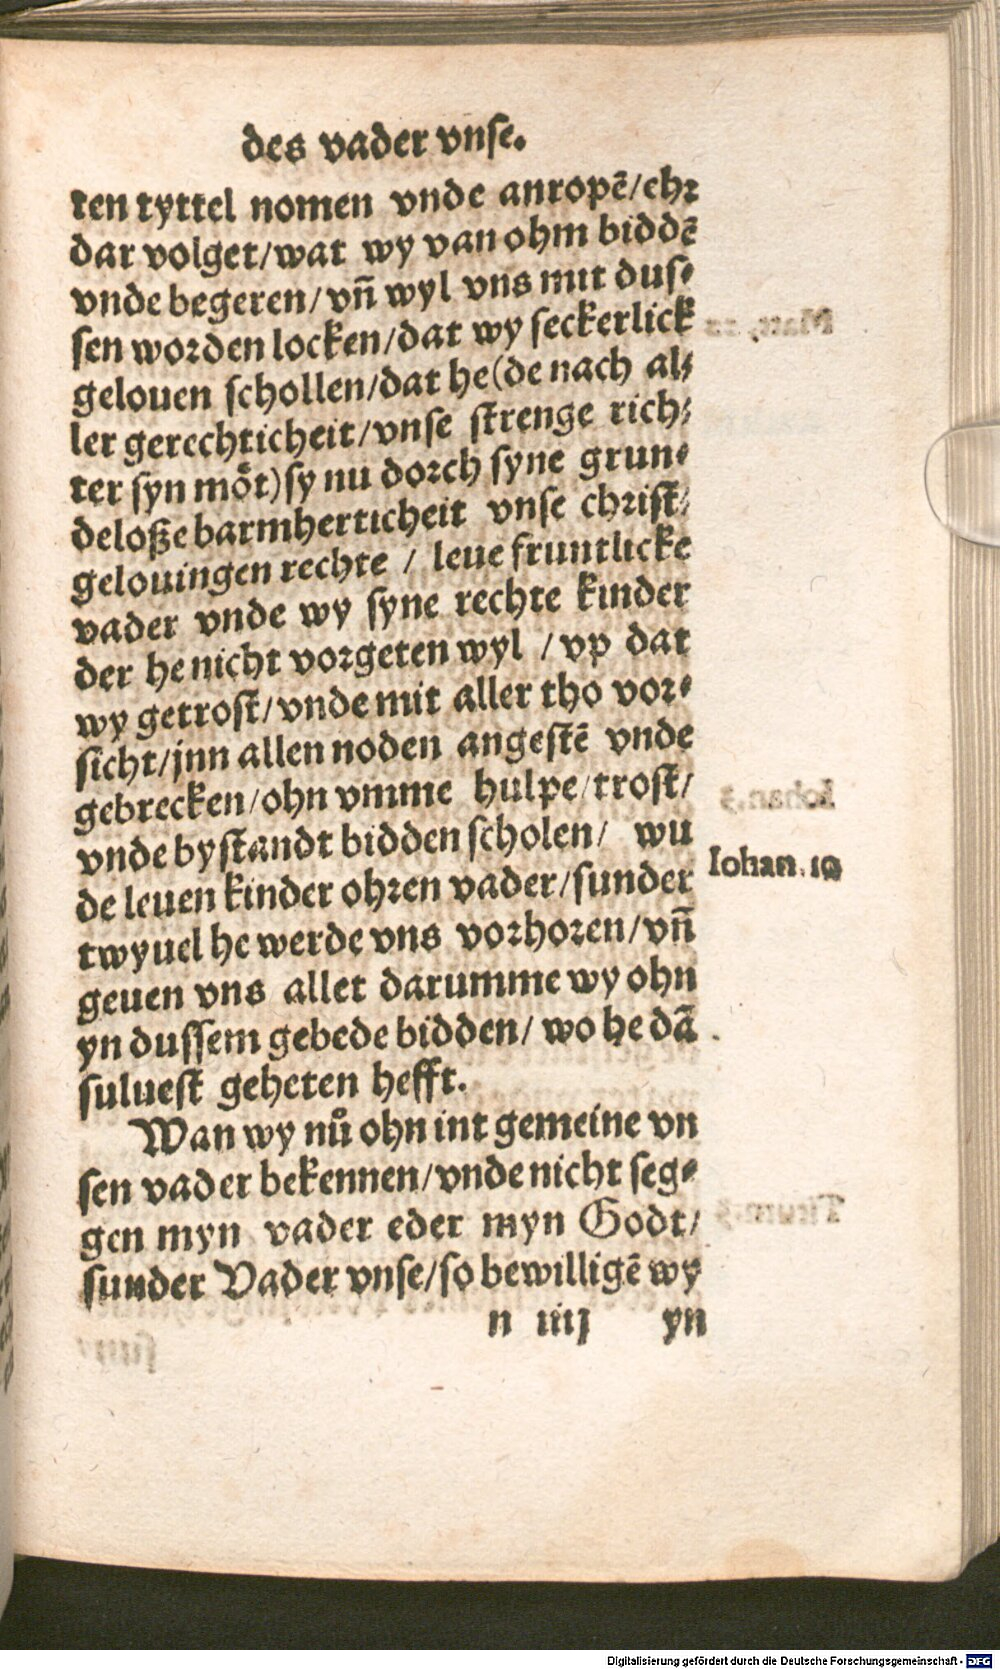 des vader vnse.
ten tyttel nomen vnde anropē/ehr
dar volget/wat wy van ohm biddē
vnde begeren/vn̄ wyl vns mit dus⸗
sen worden locken/dat wy seckerlick
gelouen schollen/dat he(de nach al⸗
ler gerechticheit/vnse strenge rich⸗
ter syn moͤt)sy nu dorch syne grun⸗
deloße barmherticheit vnse christ⸗
gelouingen rechte / leue fruntlicke
vader vnde wy syne rechte kinder
der he nicht vorgeten wyl /vp dat
wy getrost/vnde mit aller tho vor⸗
sicht/jnn allen noden angestē vnde
gebrecken/ohn vmme hulpe/trost/
vnde bystandt bidden scholen/ wu
de leuen kinder ohren vader/sunder
Iohan.10
twyuel he werde vns vorhoren/vn̄
geuen vns allet darumme wy ohn
yn dussem gebede bidden/ wo he dā
suluest geheten hefft.
Wan wy nů ohn int gemeine vn
sen vader bekennen/vnde nicht seg⸗
gen myn vader eder myn Godt/
sunder Vader vnse/so bewilligē wy
n iiij yn
Digitalisierung gefördert durch die Deutsche Forschungsgemeinschaft - DFG